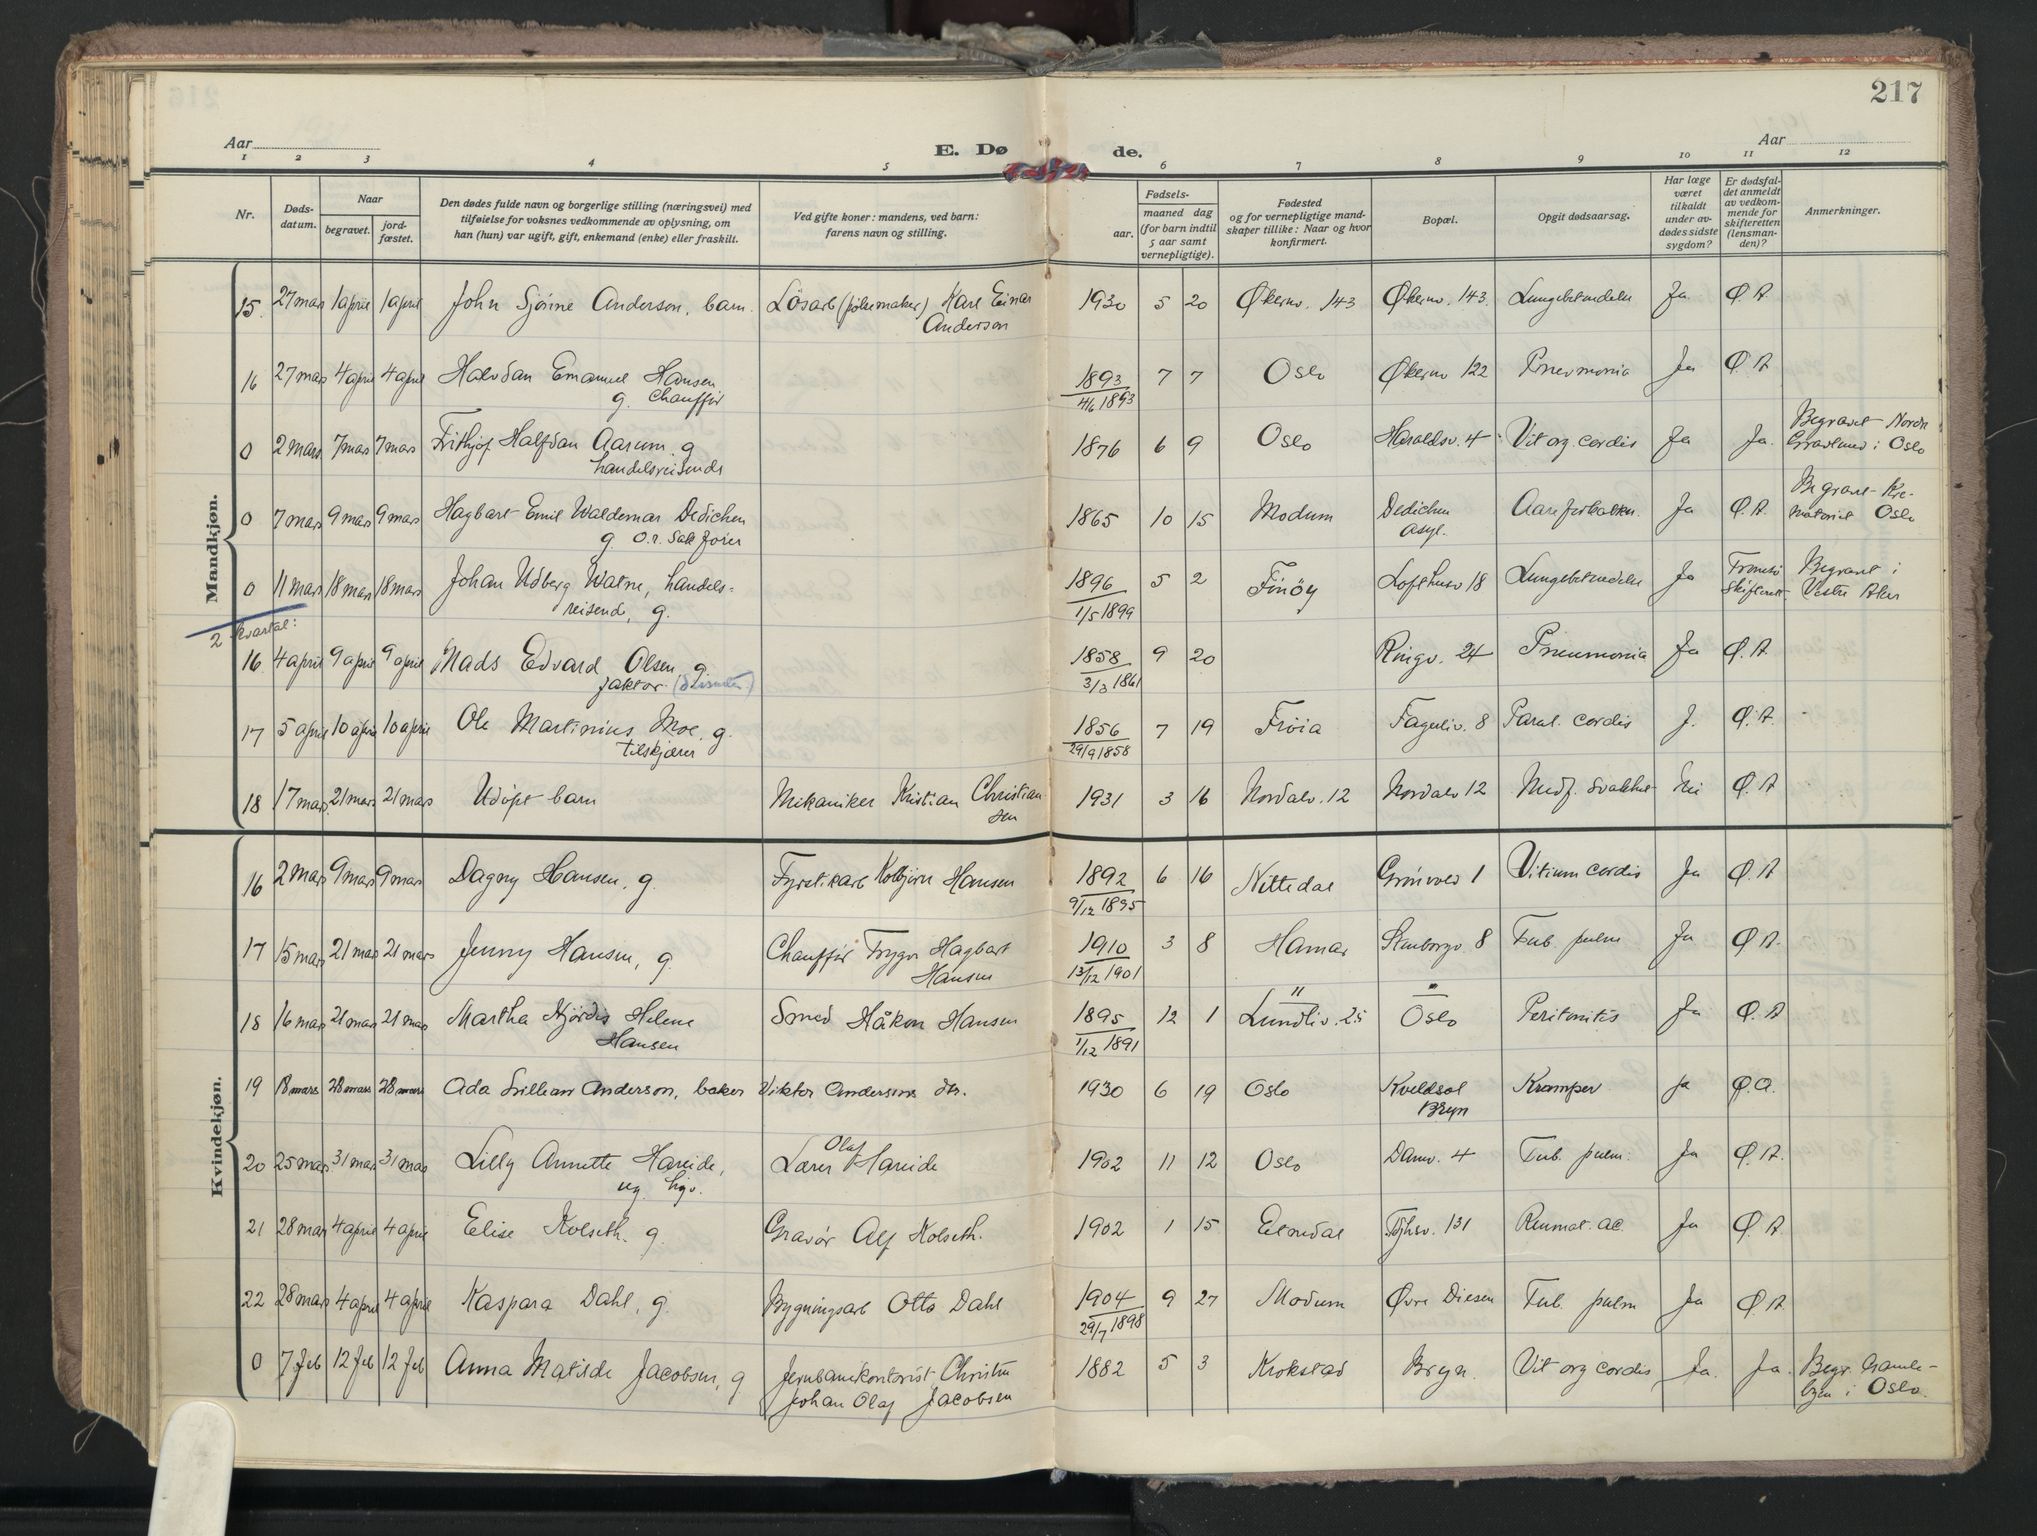 217
Aar
Aar
E. Dø
de.
1 2 3 4 5 6 7 8 9 10 11 12
Nr.
Døds-
datum.
Naar
begravet.
jord-
fæstet.
Den dødes fulde navn og borgerlige stilling (næringsvei) med
tilføielse for voksnes vedkommende av oplysning, om
han (hun) var ugift, gift, enkemand (enke) eller fraskilt.
Ved gifte koner: mandens, ved barn:
farens navn og stilling.
Fødsels-
aar.
maaned dag
(for barn indtil
5 aar samt
vernepligtige).
Fødested
og for vernepligtige mand-
skaper tillike: Naar og hvor
konfirmert.
Bopæl.
Opgit dødsaarsag.
Har læge
været
tilkaldt
under av-
dødes sidste
sygdom?
Er dødsfal-
det anmeldt
av vedkom-
mende for
skifteretten
(lensman-
den)?
Anmerkninger.
Mandkjøn.
15. 27 mars 1 april 1 april John Sjønne Anderson, barn. Løsarb (pølsemaker) Karl Einar 1930 5 20 Økernv. 143 Økernv. 143. Lungebetendelse Ja Ø. A.
Anderson
16 27 mars 4 april 4 april Halvdan Emanuel Hansen 1893 7 7 Oslo Økernv 122 Pnevmonia Ja Ø. A
g. Chauffør 4/6 1893
0 2 mars 7 mars 7 mars Frithjof Halfdan Aarum. g 1876 6 9 Oslo Haraldsv. 4 Vit org. cordis Ja Ja. Begravet Nordre
handelsreisende Gravlund i Oslo
0 7 mars 9 mars 9 mars Hagbart Emil Waldemar Dedichen 1865 10 15 Modum Dedichen Aareforkalkn. Ja Ø. A. Begravet Kre-
g. O.r. Sakfører asyl. matoriet Oslo
0 11 mars 18 mars 18 mars Johan Udberg Watne, handels- 1896 5 2 Finøy Lofthusv 18 Lungebetendelse Ja Tromsø Begravet i
reisende, g. 1/5 1899 Skifterett. Vestre Aker
2 kvartal:
16 4 april 9 april 9 april Mads Edvard Olsen g 1858 9 20 Ringv. 24 Pneumonia Ja Ø. A.
faktor 3/3 1861
17 5 april 10 april 10 april Ole Martinius Moe, g. 1856 7 19 Frøia Fagerliv. 8 Paral. cordis J. Ø. A.
tilskjærer 29/9 1858
18 17 mars 21 mars 21 mars Udøpt barn Mekaniker Kristian Christian 1931 3 16 Nordalv. 12 Nordalv 12 Medf. svakhet Nei Ø. A
sen
Kvindekjøn.
16 2 mars 9 mars 9 mars Dagny Hansen, g. Fyrstikarb Kolbjørn Hansen 1892 6 16 Nittedal Grønvold 1 Vitium cordis Ja Ø. A
9/12 1895
17 15 mars 21 mars 21 mars Jenny Hansen, g. Chauffør Trygve Hagbart 1910 3 8 Hamar Stenborgv. 8 Tub. pulm Ja Ø A.
Hansen 13/12 1901
18 16 mars 21 mars 21 mars Martha Hjørdis Helene Smed Håkon Hansen 1895 12 1 Lundliv. 25 Oslo Peritonitis Ja Ø. A
Hansen 1/12 1891
19 18 mars 28 mars 28 mars Ada Lillian Anderson, baker Viktor Andersons dr. 1930 6 19 Oslo Kveldsol Kramper ja Ø. A.
Bryn
20 25 mars 31 mars 31 mars Lilly Annette Hareide, Lærer Olaf Hareide 1902 11 12 Oslo Damv. 4 Tub. pulm. Ja Ø. A.
ug. hgv.
21 28 mars 4 april 4 april Elise Kolseth. g. Gravør Alf Kolseth. 1902 1 15 Elnedal 131 Reumat. ac Ja Ø A.
22 28 mars 4 april 4 april Kaspara Dahl, g. Bygningsarb Otto Dahl 1904 9 27 Modum Øvre Diesen Tub. pulm Ja Ø. A.
29/7 1898
0 7 feb 12 feb 12 feb Anna Matilde Jacobsen, g Jernbanekontorist Christen 1882 5 3 Krokstad Bryn. Vit org cordis Ja. Ja. Begr. Gamle-
Johan Olaf Jacobsen byen i Oslo.